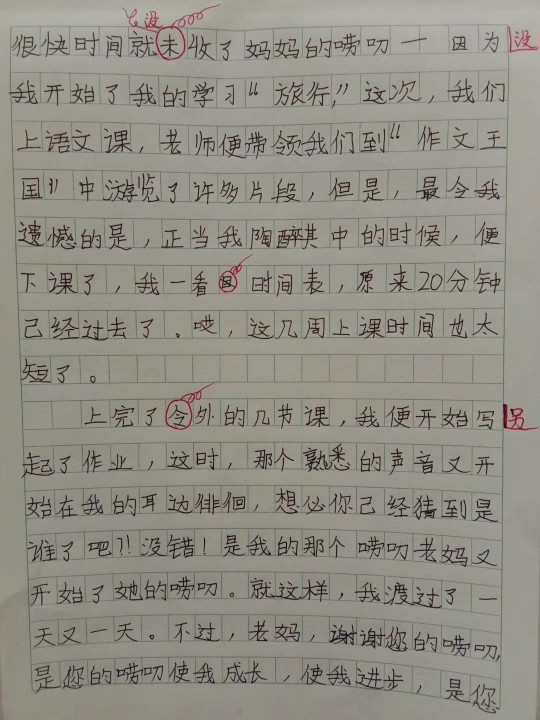 没
很快时间就未收了妈妈的唠叨一 因为 没
我开始了我的学习“旅行,”这次，我们
上语文课，老师便带领我们到“作文王
国”中游览了许多片段，但是，最令我
遗憾的是，正当我陶醉其中的时候，便
下课了，我一看 时间表，原来20分钟
己经过去了。哎，这几周上课时间也太
短了。
上完了令外的几节课，我便开始写 另
起了作业，这时，那个熟悉的声音又开
始在我的耳边徘徊，想必你己经猜到是
谁了吧?!没错！是我的那个唠叨老妈又
开始了她的唠叨。就这样，我渡过了一
天又一天。不过，老妈，谢谢您的唠叨，
是您的唠叨使我成长，使我进步，是您